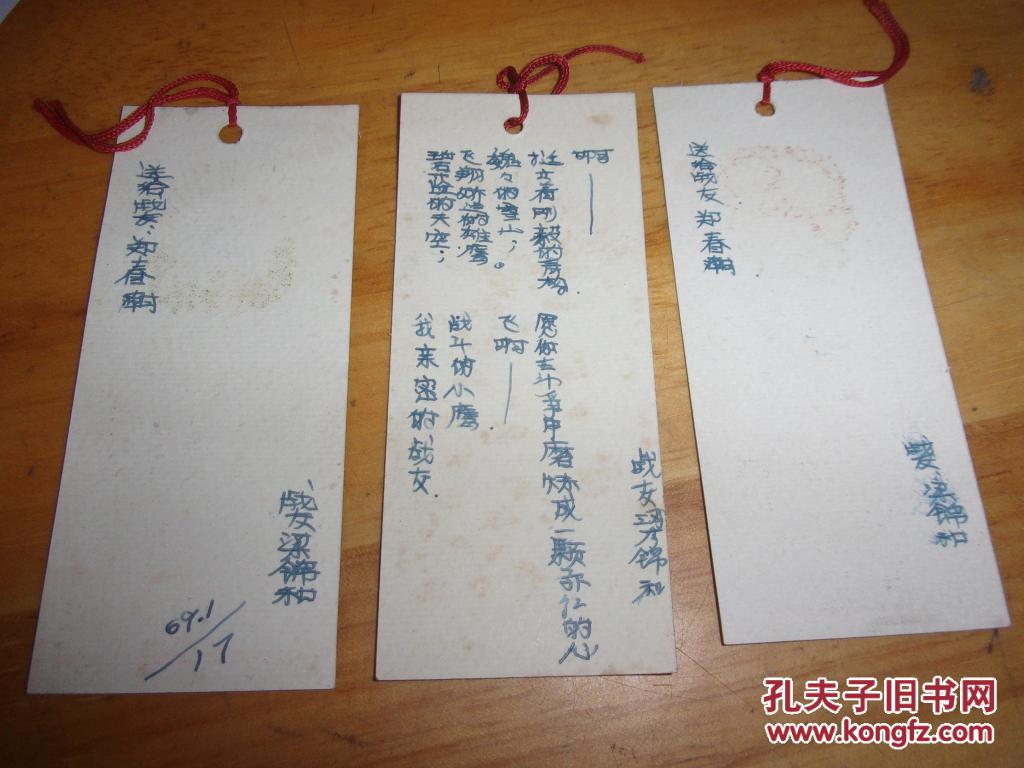 送给战友:郑春
战友:梁锦和
69.1/17
碧蓝的天空;
飞翔矫健的雄鹰。
巍々的雪山;
挺立着刚毅的青松。
啊——
我亲密的战友,
战斗的小鹰.
飞啊——
愿你去斗争中磨炼成一颗赤红的心
战友 梁锦和
送给战友 郑春
战友:梁锦和
孔夫子旧书网
www.kongfz.com